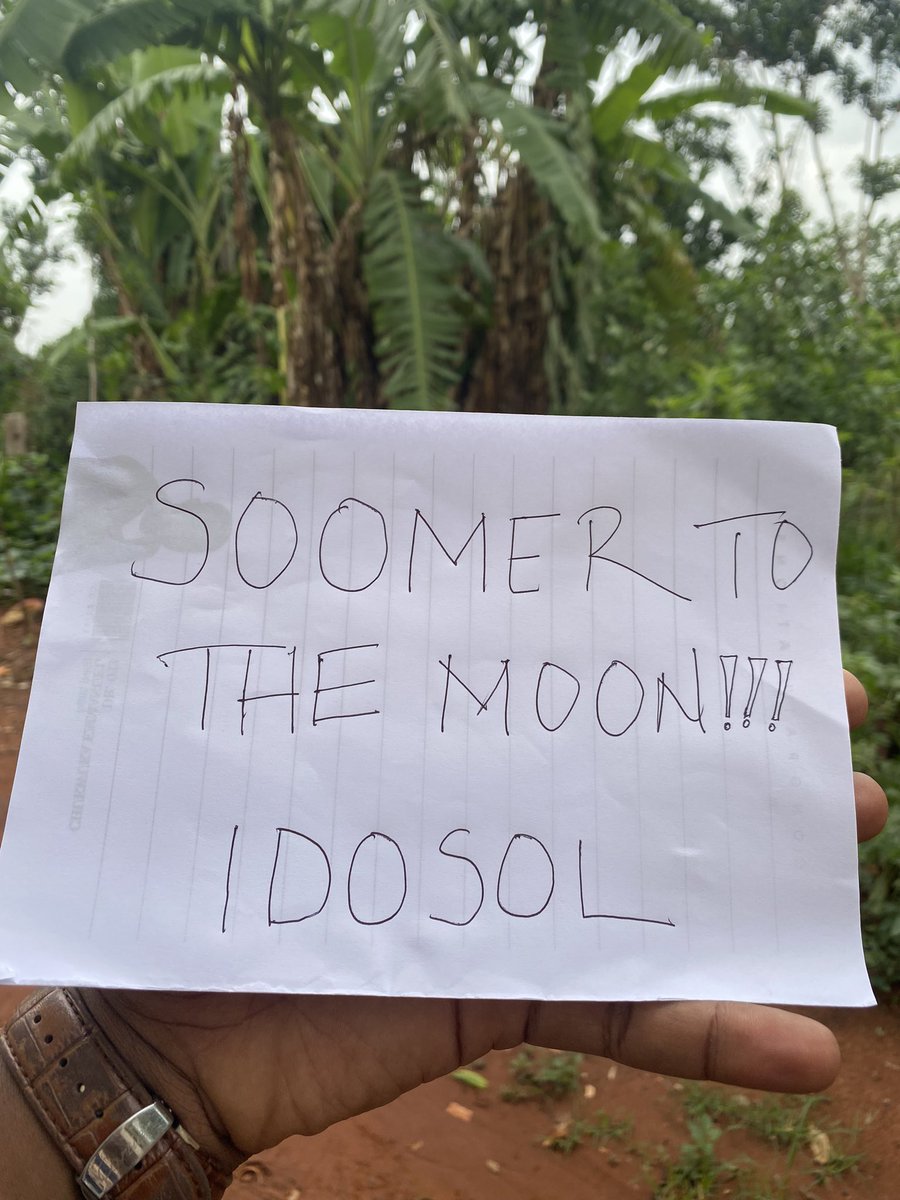 SOOMER TO
THE MOON!!!
IDOSOL